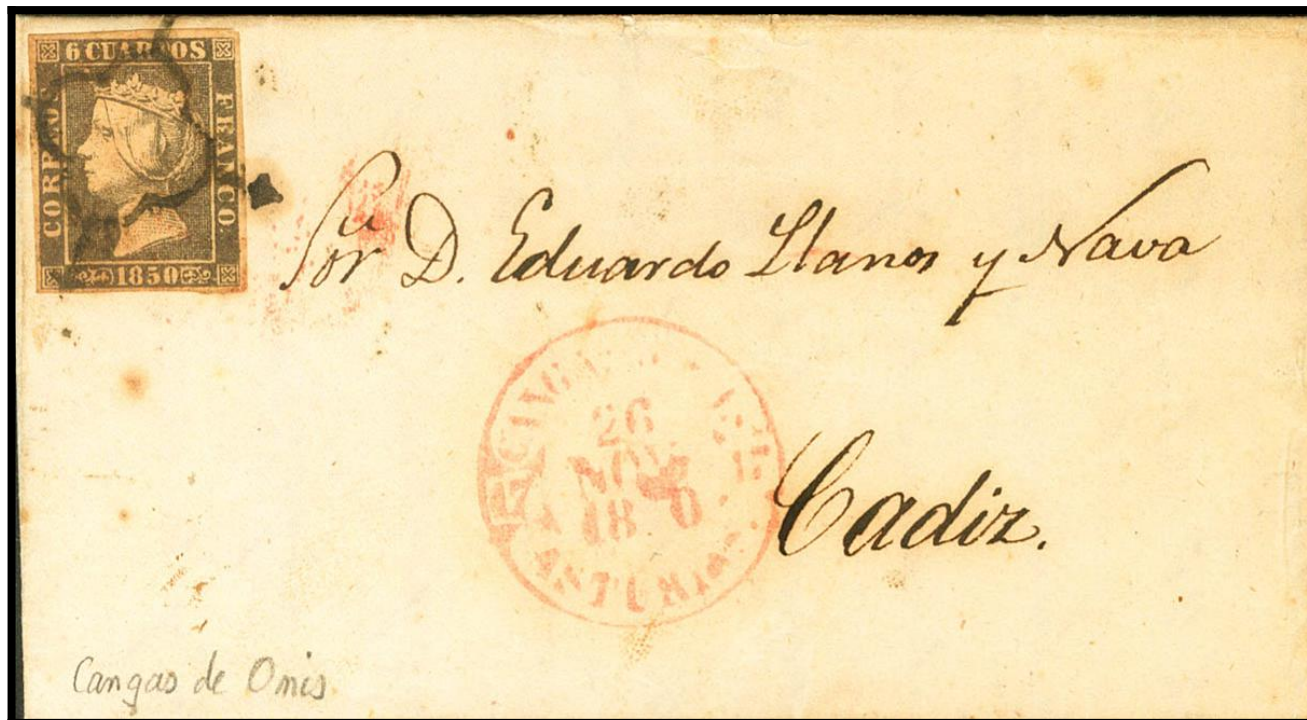 6 CUARTOS
CORREOS
FRANCO
1850
Sor. D. Eduardo Llanos y Nava
26
NOV
ASTURIAS
Cadiz.
Cangas de Onis